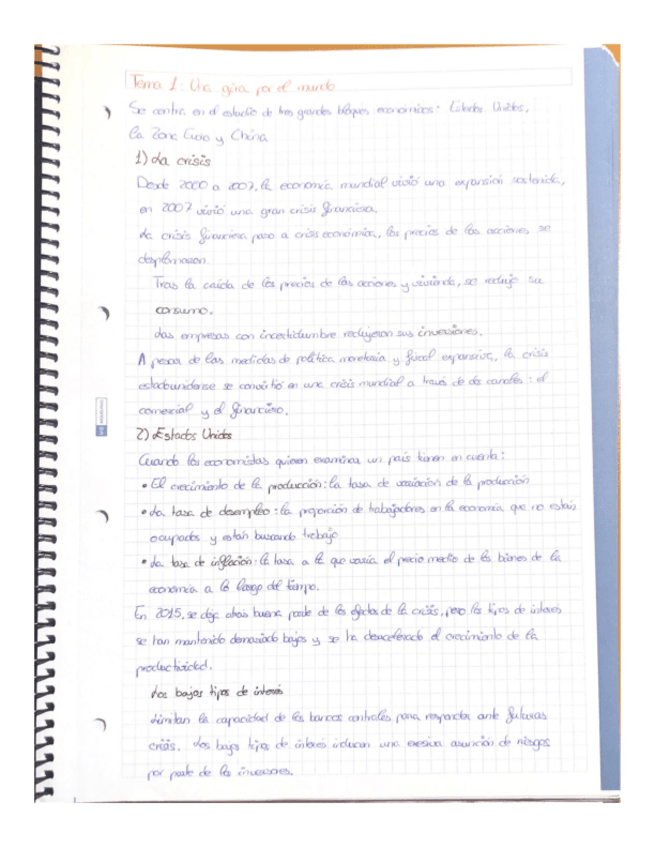 Tema 1: Una gira por el mundo
Se centra en el estudio de tres grandes bloques económicos: Estados Unidos,
la Zona Euro y China
1) La crisis
Desde 2000 a 2007, la economía mundial vivió una expansión sostenida,
en 2007 vivió una gran crisis financiera.
La crisis financiera paso a crisis económica, los precios de las acciones se
desplomaron.
Tras la caída de los precios de las acciones y vivienda, se redujo su
consumo.
Las empresas con incertidumbre redujeron sus inversiones.
A pesar de las medidas de política monetaria y fiscal expansiva, la crisis
estadounidense se convirtió en una crisis mundial a través de dos canales: el
comercial y el financiero.
2) Estados Unidos
Cuando los economistas quieren examinar un país tienen en cuenta:
• El crecimiento de la producción: la tasa de variación de la producción
• La tasa de desempleo: la proporción de trabajadores en la economía que no están
ocupados y están buscando trabajo
• La tasa de inflación: la tasa a la que varía el precio medio de los bienes de la
economía a lo largo del tiempo.
En 2015, se deja atrás buena parte de los efectos de la crisis, pero los tipos de interés
se han mantenido demasiado bajos y se ha desacelerado el crecimiento de la
productividad.
Los bajos tipos de interés
Limitan la capacidad de los bancos centrales para responder ante futuras
crisis. Los bajos tipos de interés inducen una excesiva asunción de riesgos
por parte de los inversores.